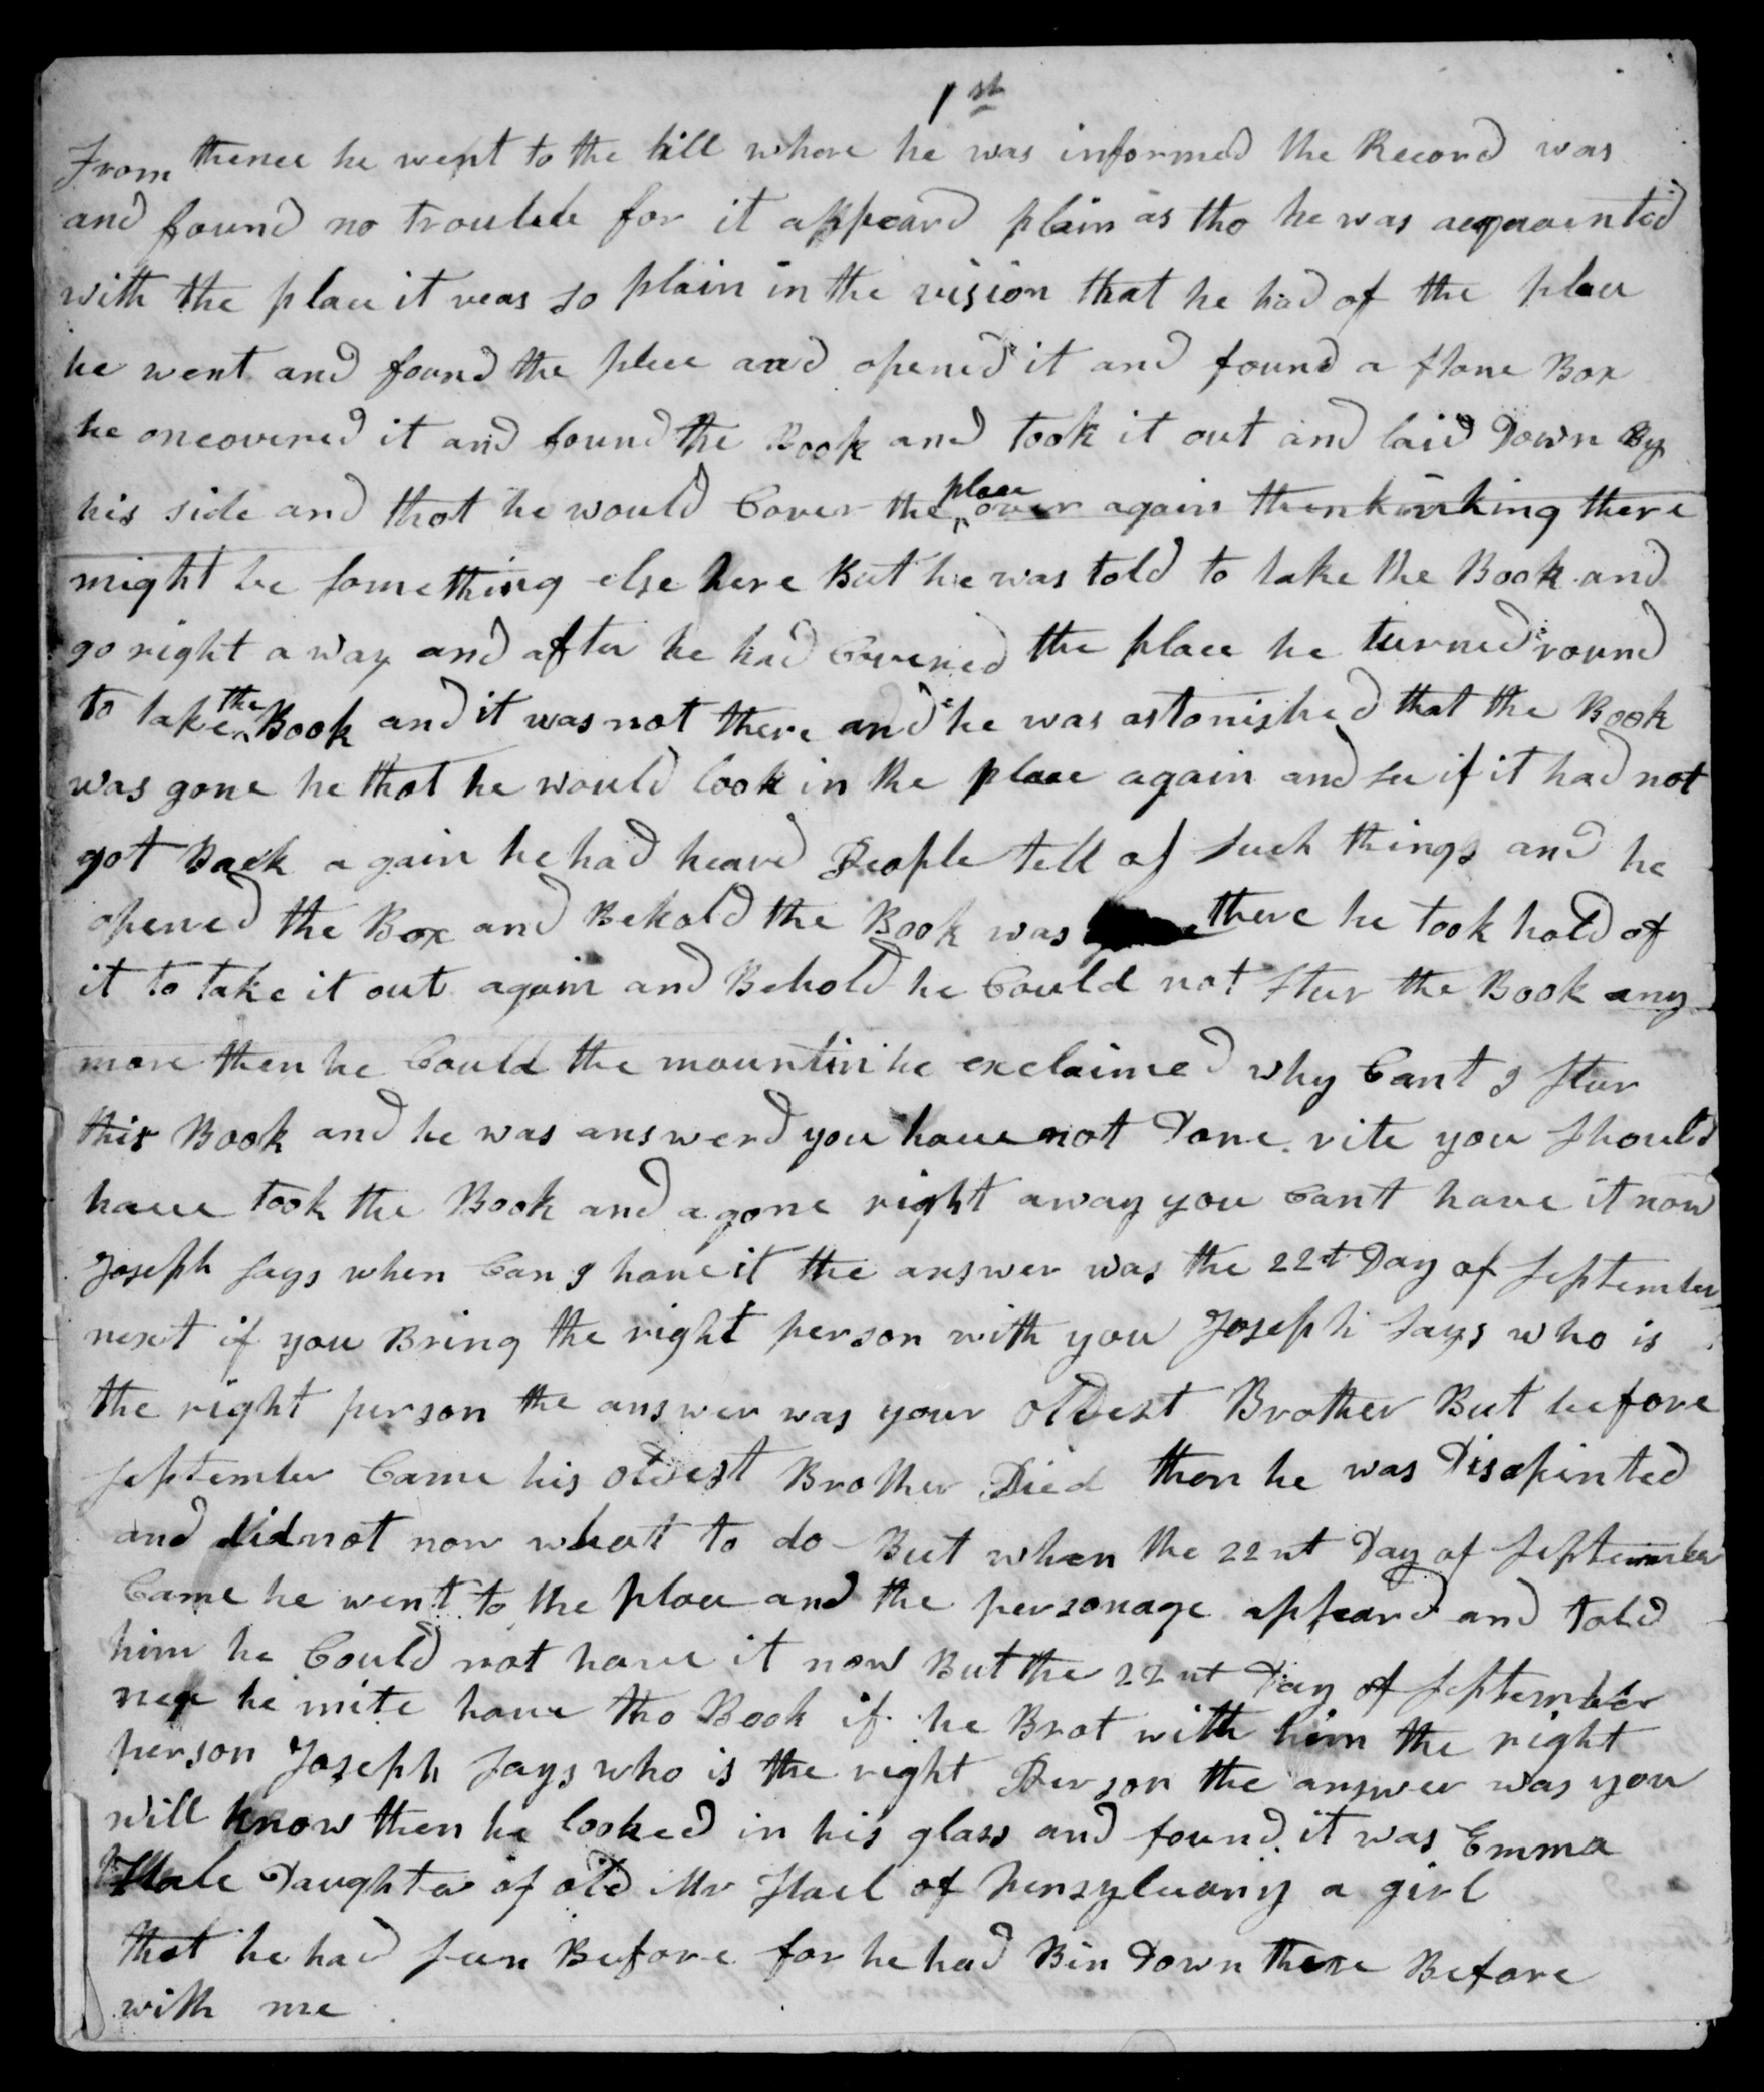 1st
From thence he went to the hill where he was informed the Record was
and found no trouble for it appeard plain as tho he was acquainted
with the place it was so plain in the vision that he had of the place
he went and found the place and opened it and found a stone Box
he oncovered it and found the Book and took it out and laid Down By
his side and that he would Cover the place over again thenkinking there
might be something else here But he was told to take the Book and
go right a way and after he had Covered the place he turned round
to take the Book and it was not there and he was astonished that the Book
was gone he that he would look in the place again and see if it had not
got Back again he had heard People tell of such things and he
opened the Box and Behold the Book was there he took hold of
it to take it out again and Behold he Could not stur the Book any
more then he Could the mountin he exclaimed why Cant I stur
this Book and he was answerd you have not Done rite you should
have took the Book and a gone right away you cant have it now
Joseph says when Can I have it the answer was the 22t Day of September
next if you Bring the right person with you Joseph says who is
the right person the answer was your oldest Brother But before
September Came his oldest Brother Died then he was Disapinted
and did not now what to do But when the 22nt Day of September
Came he went to the place and the personage appeard and told
him he Could not have it now But the 22nt Day of September
nex he mite have the Book if he Brot with him the right
person Joseph says who is the right Person the answer was you
will know then he looked in his glass and found it was Emma
Hale Daughter of old Mr Hail of Pensylvany a girl
that he had seen Before for he had Bin Down there Before
with me